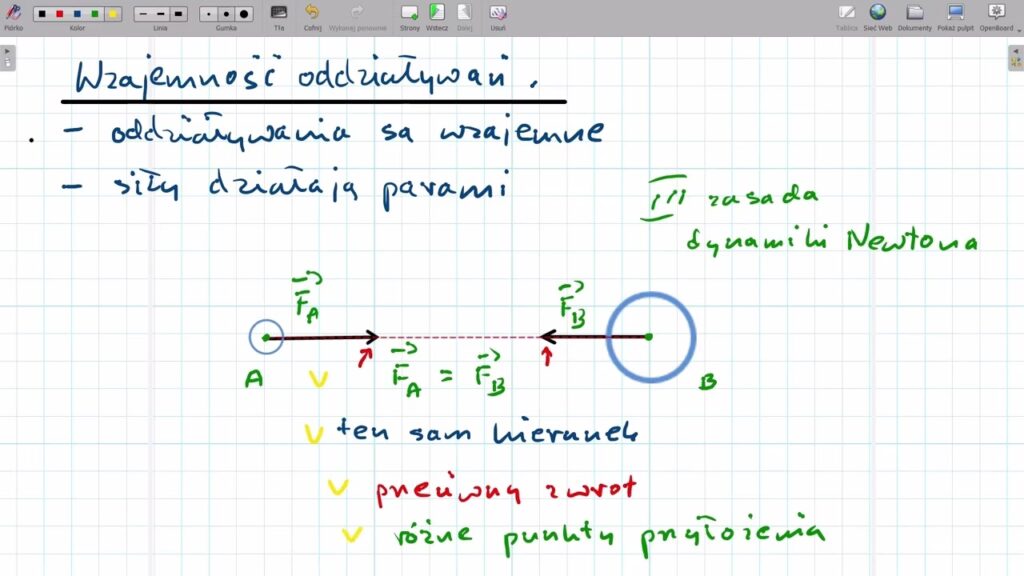 Piórko Kolor Linia Gumka Tła Cofnij Wykonaj ponownie Strony Wstecz Dalej Usuń Tablica Sieć Web Dokumenty Pokaż pulpit OpenBoard
Wzajemność oddziaływań.
- oddziaływania sa wzajemne
- siły działają parami
III zasada
dynamiki Newtona
F_A
F_B
A
F_A = F_B
B
v
v ten sam kierunek
v przeciwny zwrot
v różne punkty przyłożenia